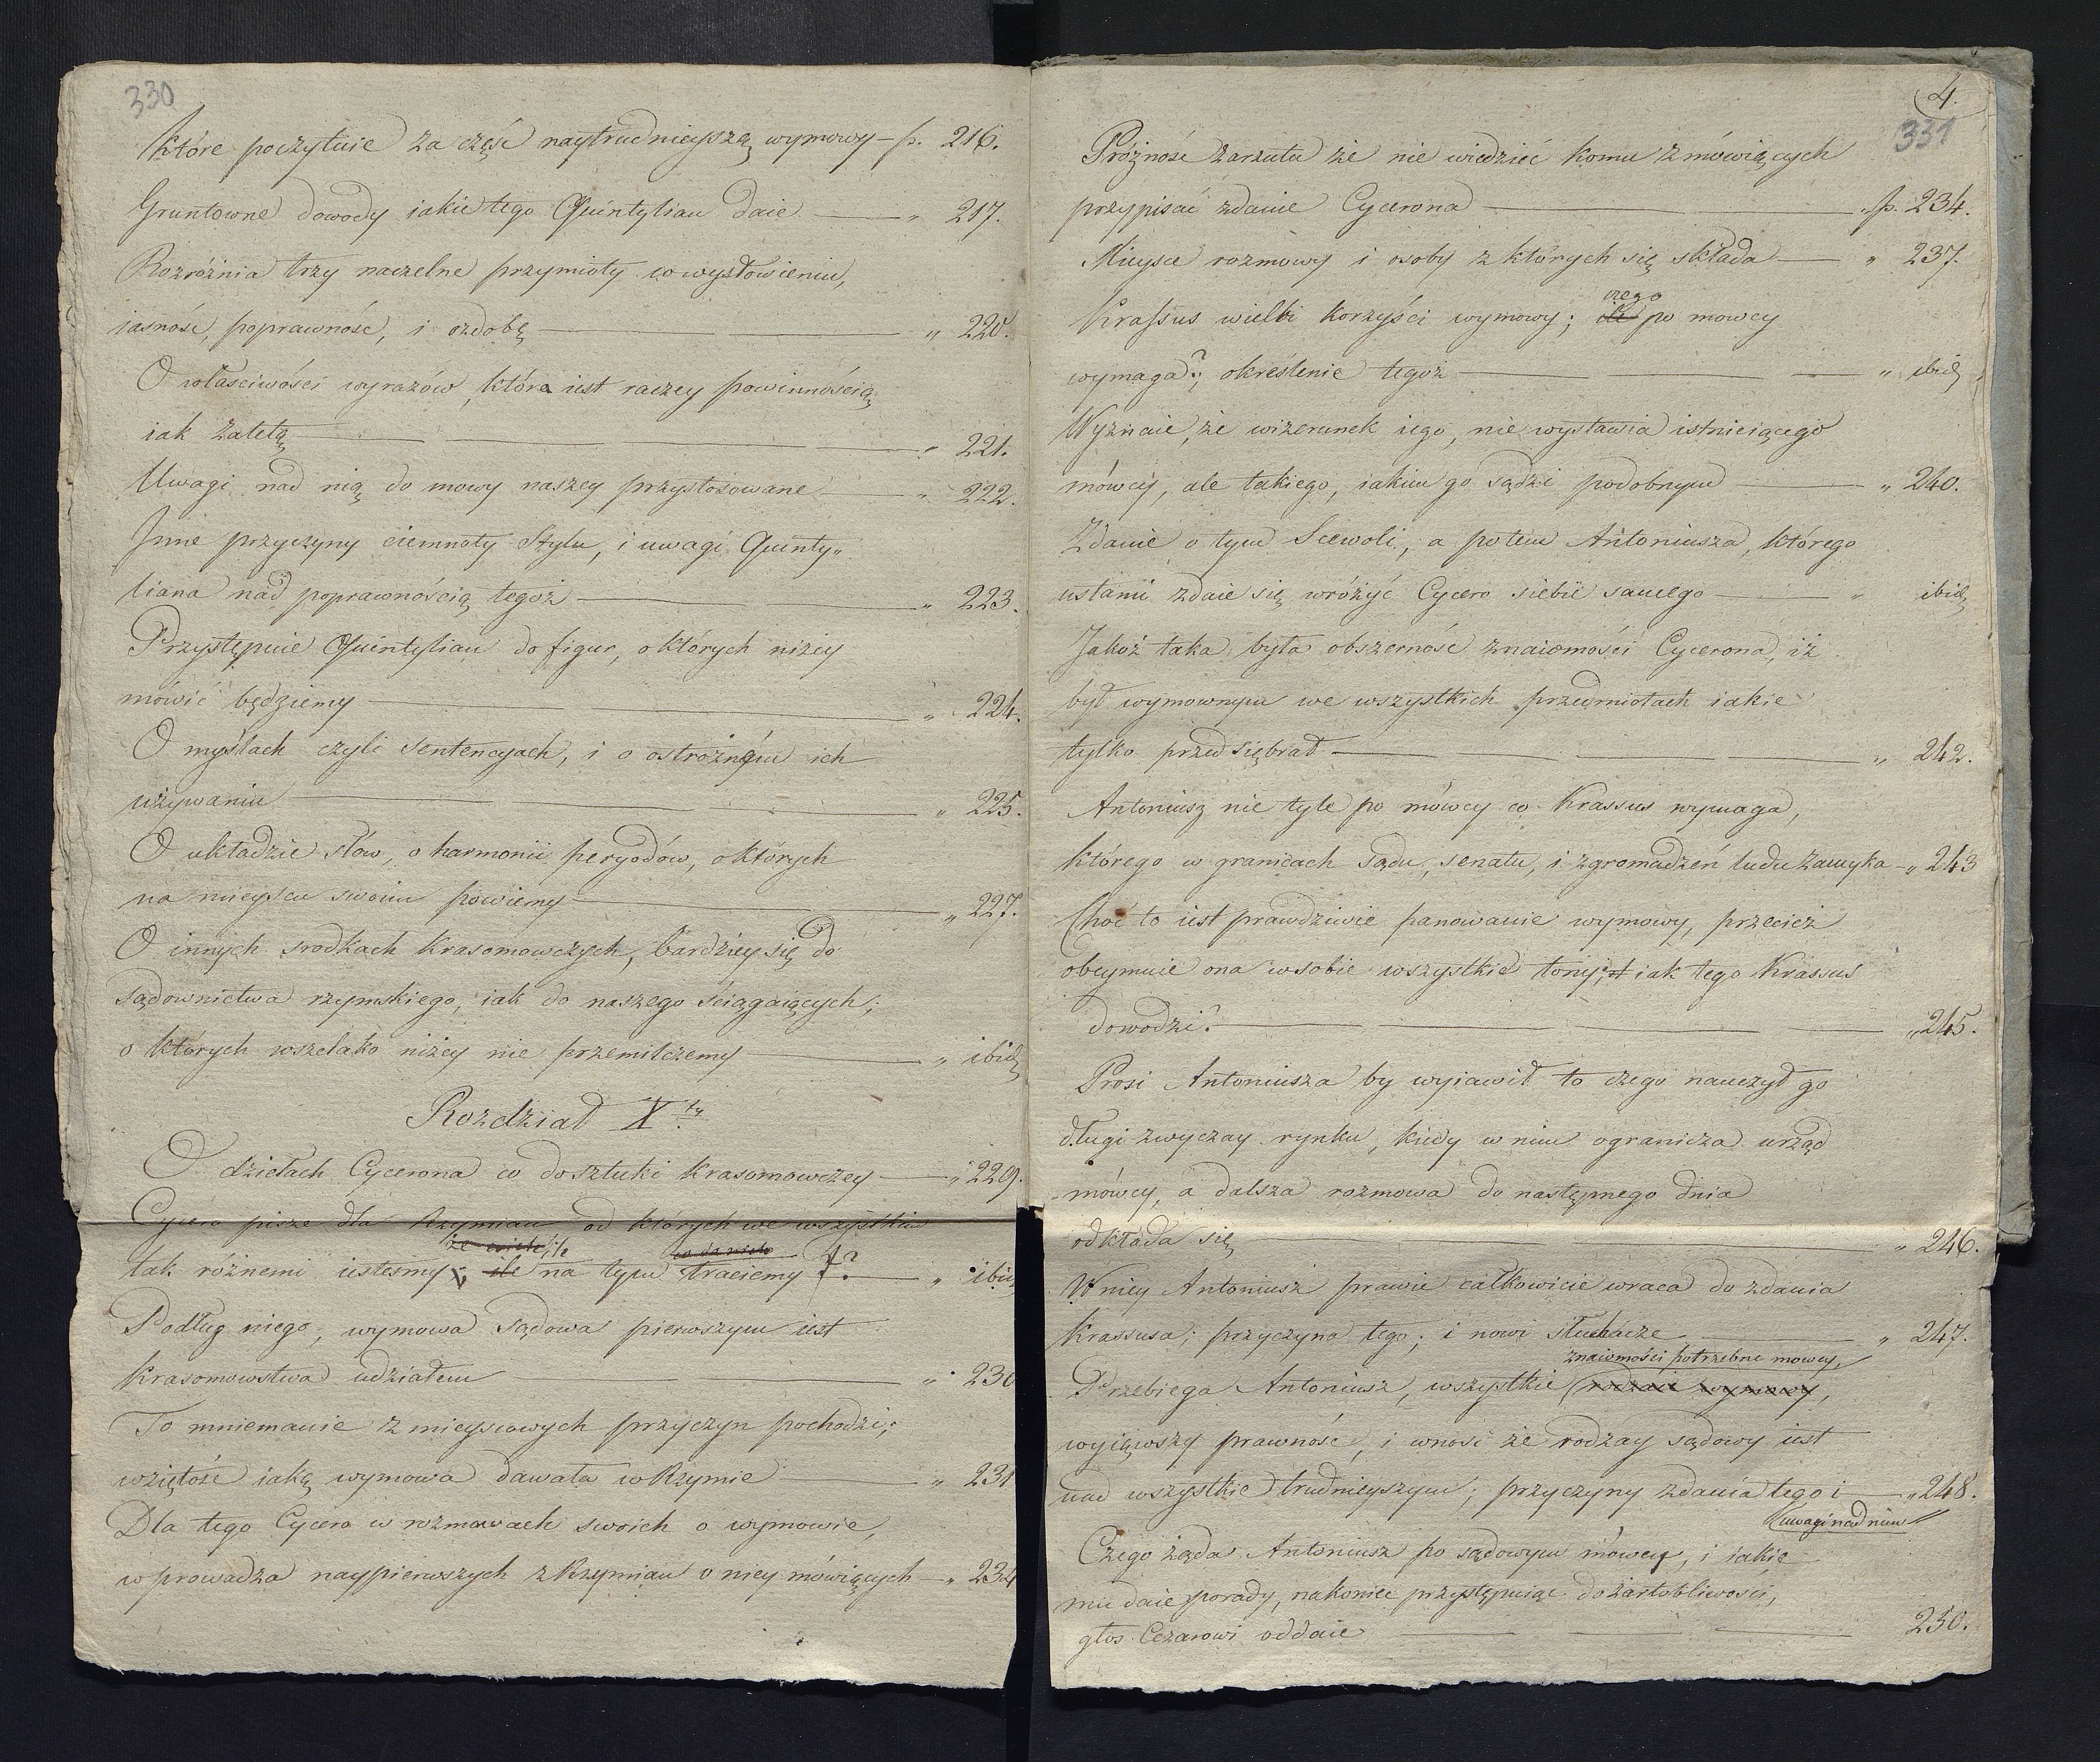 330
które poczytuie za część naytrudnieyszą wymowy – p. 216.
Gruntowne dowody iakie tego Quintylian daie — " 217.
Rozróżnia trzy naczelne przymioty w wysłowieniu,
iasność, poprawność, i ozdobę — " 220.
O właściwości wyrazów, która iest raczey powinnością
iak zaletą — " 221.
Uwagi nad nią do mowy naszey przystosowane — " 222.
Inne przyczyny ciemnoty Stylu, i uwagi Quinty„
liana nad poprawnością tegoż — " 223.
Przystępuie Quintylian do figur, o których niżey
mówić będziemy — " 224.
O myślach czyli sentencyach, i o ostrożnym ich
używaniu — " 225.
O układzie słów, o harmonii peryodów, o których
na mieyscu swoim powiemy — " 227.
O innych srodkach krasomowczych, bardziey się do
sądownictwa rzymskiego, iak do naszego ściągaiących;
o których wszelako niżey nie przemilczemy — " ibid
Rozdział X ty
O dziełach Cycerona co do sztuki krasomowczey — " 229.
Cycero pisze dla Rzymian od których we wszystkim
ile
tak różnemi iestesmy, ile na tym traciemy? — " ibid
Podług niego, wymowa sądowa pierwszym iest
krasomowstwa udziałem — " 230
To mniemanie z mieyscowych przyczyn pochodzi;
wziętość iaką wymowa dawała w Rzymie — " 231
Dla tego Cycero w rozmowach swoich o wymowie,
wprowadza naypierwszych z Rzymian o niey mówiących — " 234
4.
331
Próżność zarzutu że nie wiedzieć komu z mówiących
przypisać zdanie Cycerona — " p. 234.
Mieysce rozmowy i osoby z których się składa — " 237.
czego
Krassus wielbi korzyści wymowy; ile po mowcy
wymaga?; określenie tegoż — " ibid
Wyznaie, że wizerunek iego, nie wystawia istnieiącego
mówcy, ale takiego, iakim go sądzi podobnym — " 240.
Zdanie o tym Scewoli, a potem Antoniusza, którego
ustami zdaie się wróżyć Cycero siebie samego — " ibid
Jakoż taka była obszerność znaiomości Cycerona, iż
był wymownym we wszystkich przedmiotach iakie
tylko przedsiębrał — " 242.
Antoniusz nie tyle po mówcy co Krassus wymaga,
którego w granicach sądu, senatu, i zgromadzeń ludu zamyka – " 243
Choć to iest prawdziwie panowanie wymowy, przecież
obeymuie ona w sobie wszystkie tony; iak tego Krassus
dowodzi? — " 245.
Prosi Antoniusza by wyiawił to czego nauczył go
długi zwyczay rynku, kiedy w nim ogranicza urząd
mówcy, a dalsza rozmowa do następnego dnia
odkłada się — " 246.
W niey Antoniusz prawie całkowicie wraca do zdania
Krassusa; przyczyna tego; i nowi słuchacze — " 247.
znaiomości potrzebne mowcy,
Przebiega Antoniusz, wszystkie rodzaie wymowy,
wyiąwszy prawność, i wnosi że rodzay sądowy iest
nad wszystkie trudnieyszym; przyczyny zdania tego i — " 248.
uwagi nad nim
Czego żąda Antoniusz po sądowym mówcy, i iakie
mu daie porady, nakoniec przystępuiąc do żartobliwości,
głos Cezarowi oddaie — 250.